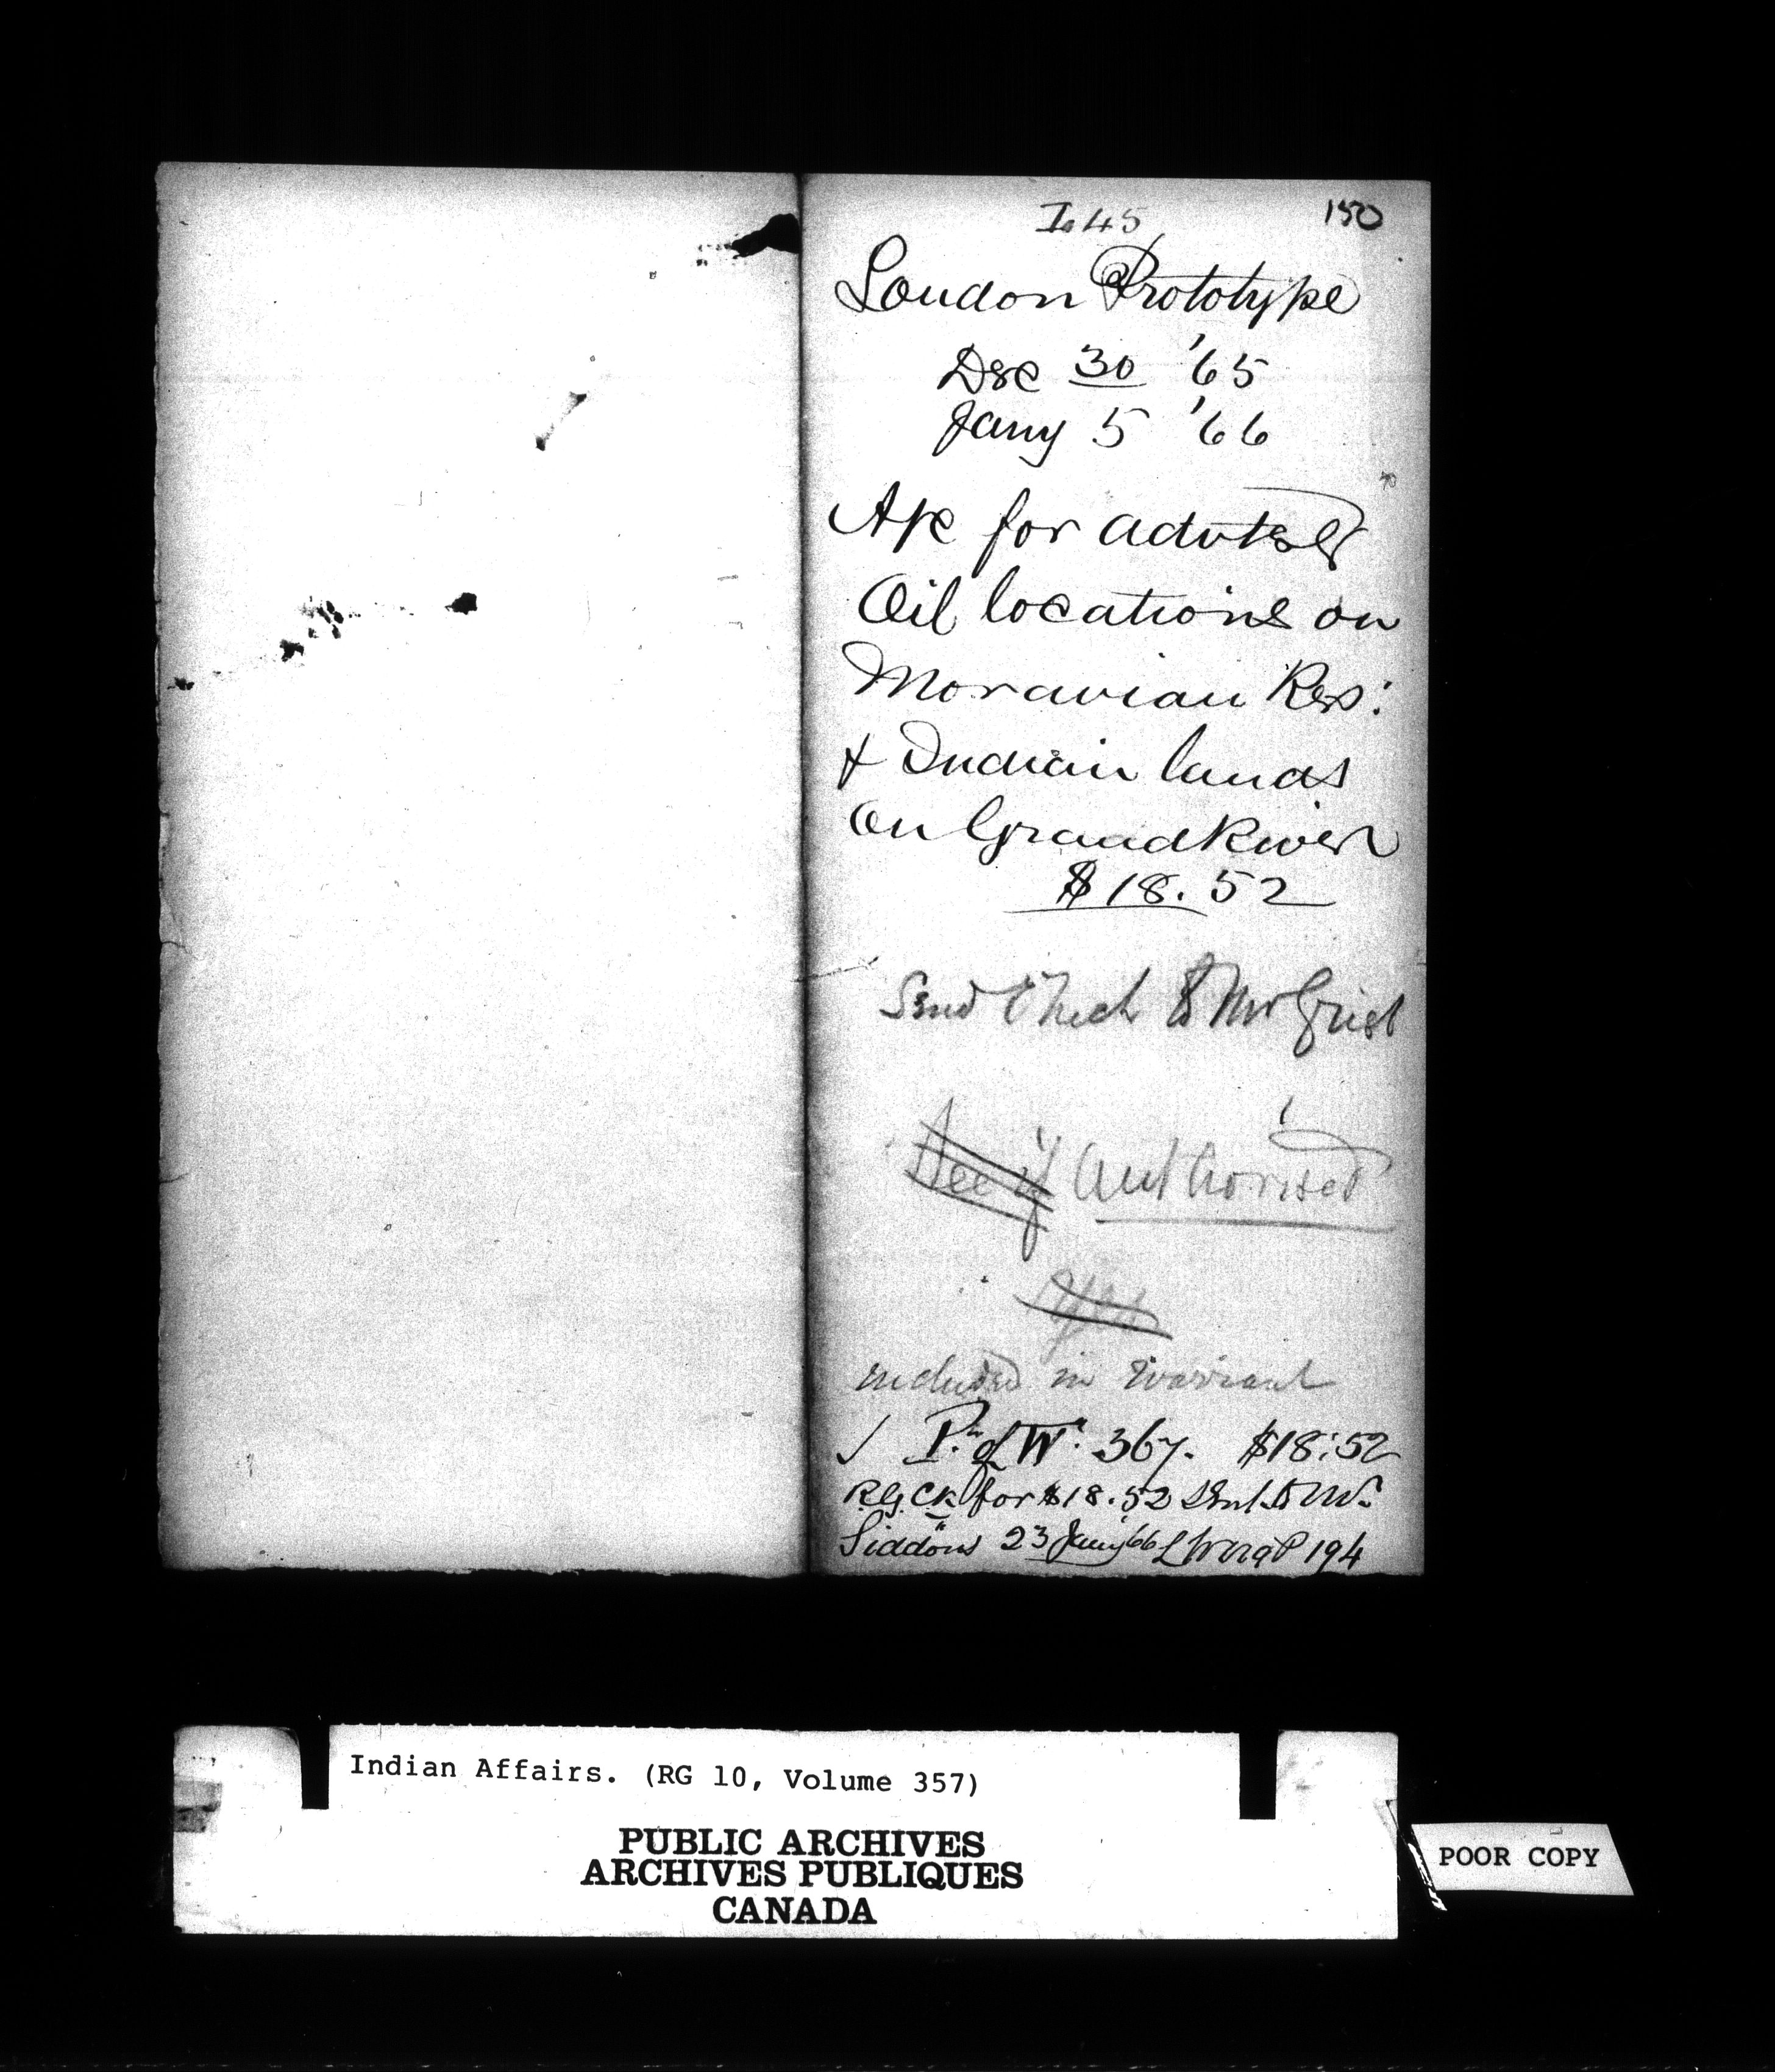 I. 45
150
London Prototype
Dec 30 '65
Jany 5 '66
A/c for advtsg
Oil locations on
Moravian Res:
& Indian lands
on Grand River
$18.52
Send Check to Mr Grist
See if Authorised
Yes
included in Warrant
✓ P. of W. 367. $18.52
R.G. Ck for $18.52 sent to Mr
Siddons 23 Jany '66 194
Indian Affairs. (RG 10, Volume 357)
PUBLIC ARCHIVES
ARCHIVES PUBLIQUES
CANADA
POOR COPY